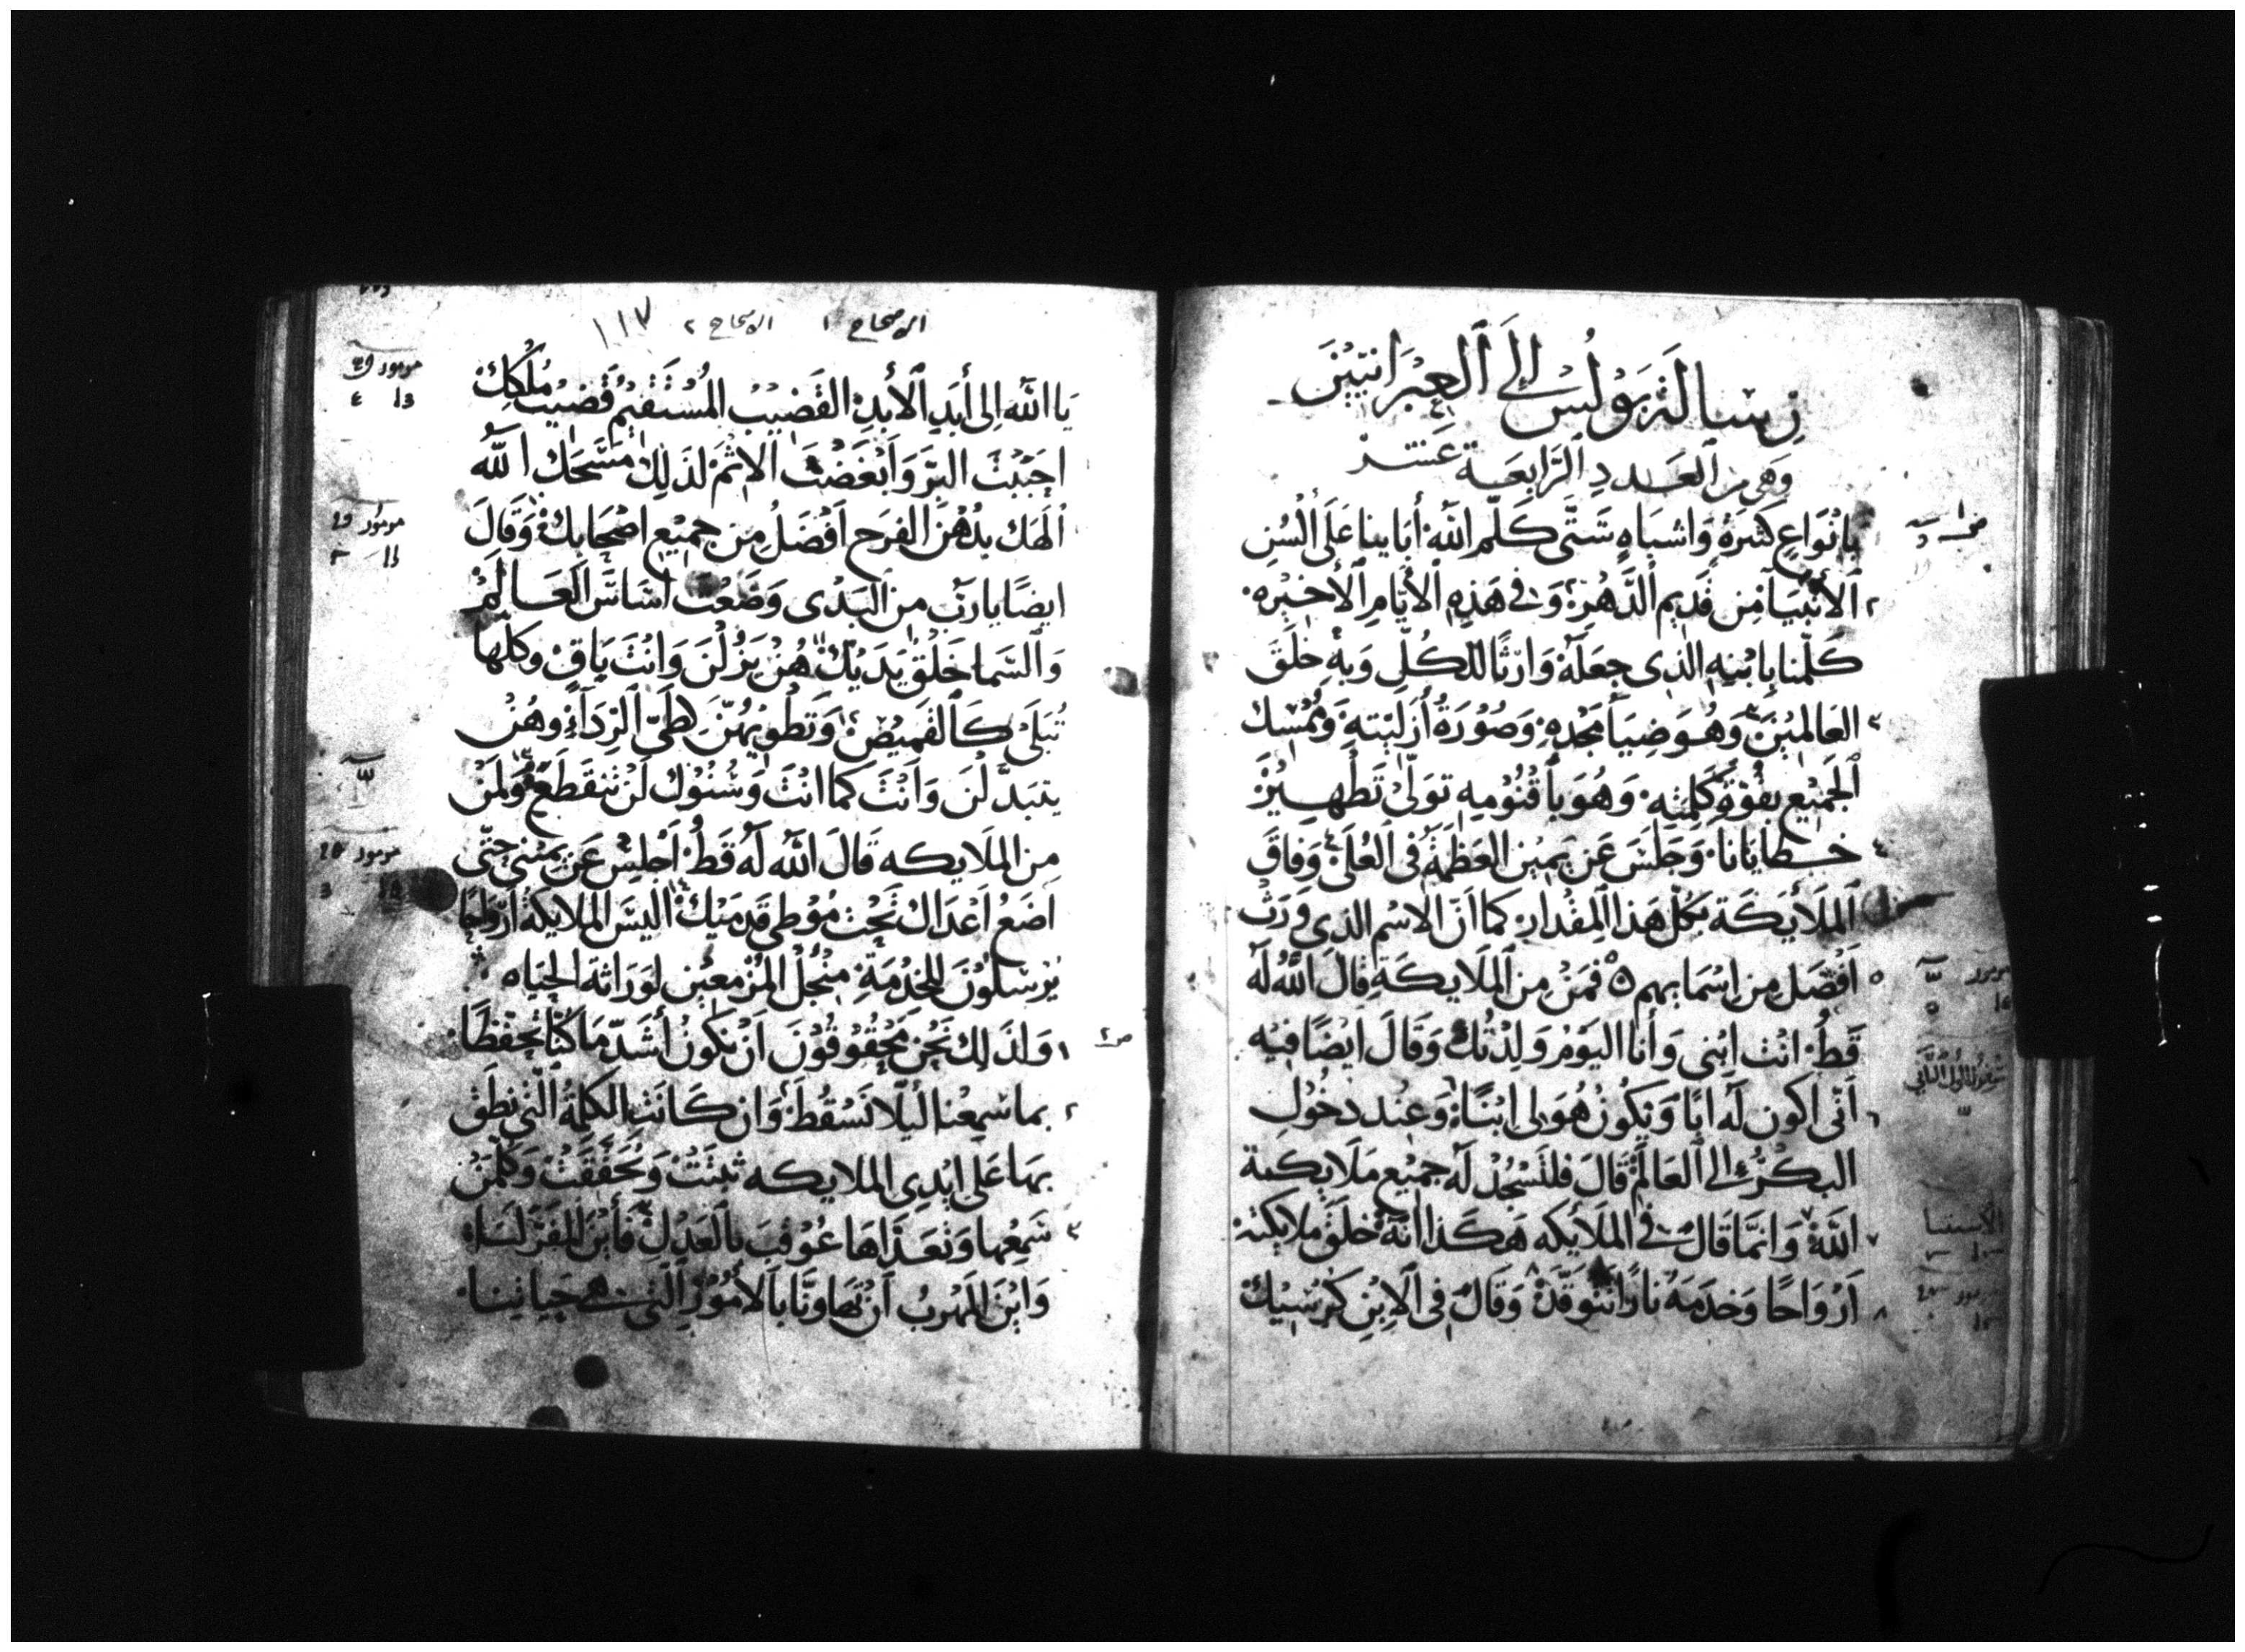 رسالة بولس الى العبرانيين
وهي من العدد الرابعة عشر
بانواع كثيرة واشباه شتى كلم الله أبآينا على ألسن
٢ الأنبيآ من قديم الدهر وفي هذه الأيام الأخيره
كلمنا بابنه الذي جعله وارثا للكل وبه خلق
٣ العالمين وهو ضيآ مجده وصورة أزليته وممسك
الجميع بقوة كلمته وهو بأقنومه تولى تطهيرْ
٤ خطايانا وجلس عن يمين العظمة في العلى وفاق
الملأيكة بكل هذا المقدار كما ان الاسم الذي ورث
٥ افضل من اسمايهم ٥ فمن من الملايكة قال الله له
قط انت ابني وأنا اليوم ولدتك وقال ايضا فيه
٦ أنى اكون له ابا ويكون هو لي ابنا وعند دخول
البكر الى العالم قال فلتسجد له جميع ملايكة
٧ الله وانما قال في الملأيكه هكذا انه خلق ملايكته
٨ أرواحا وخدمه نارا تتوقد وقال في الابن كرسيك
الاصحاح ١ الاصحاح ٢ ١١٧
يا الله الى أبد الأبد القضيب المستقيم قضيب ملكك
احببت البر وابغضت الاثم لذلك مسحك الله
الهك بدهن الفرح افضل من جميع اصحابك وقال
ايضا يا رب من البدى وضعت اساس العالم
والسما خلق يديك هن يزلن وانت باق وكلها
تبلى كالقميص وتطويهن كطي الردآء وهن
يتبدلن وانت كما انت وسنوك لن تنقطع ولمن
من الملايكه قال الله له قط اجلس عن يميني حتى
اضع اعداك تحت موطي قدميك اليس الملايكة ارواحا
يرسلون للخدمة منجل المزمعين لوراثة الحياه
ص٢
١ ولذلك نحن محقوقون ان نكون أشد ما كنا تحفظا
٢ بما سمعنا ليلا نسقط وان كانت الكلمة التي نطق
بها على ايدي الملايكه ثبتت وتحققت وكلمن
٣ سمعها وتعداها عوقب بالعدل فأين المفر لنا
واين المهرب ان تهاونا بالأمور التي هي حياتنا